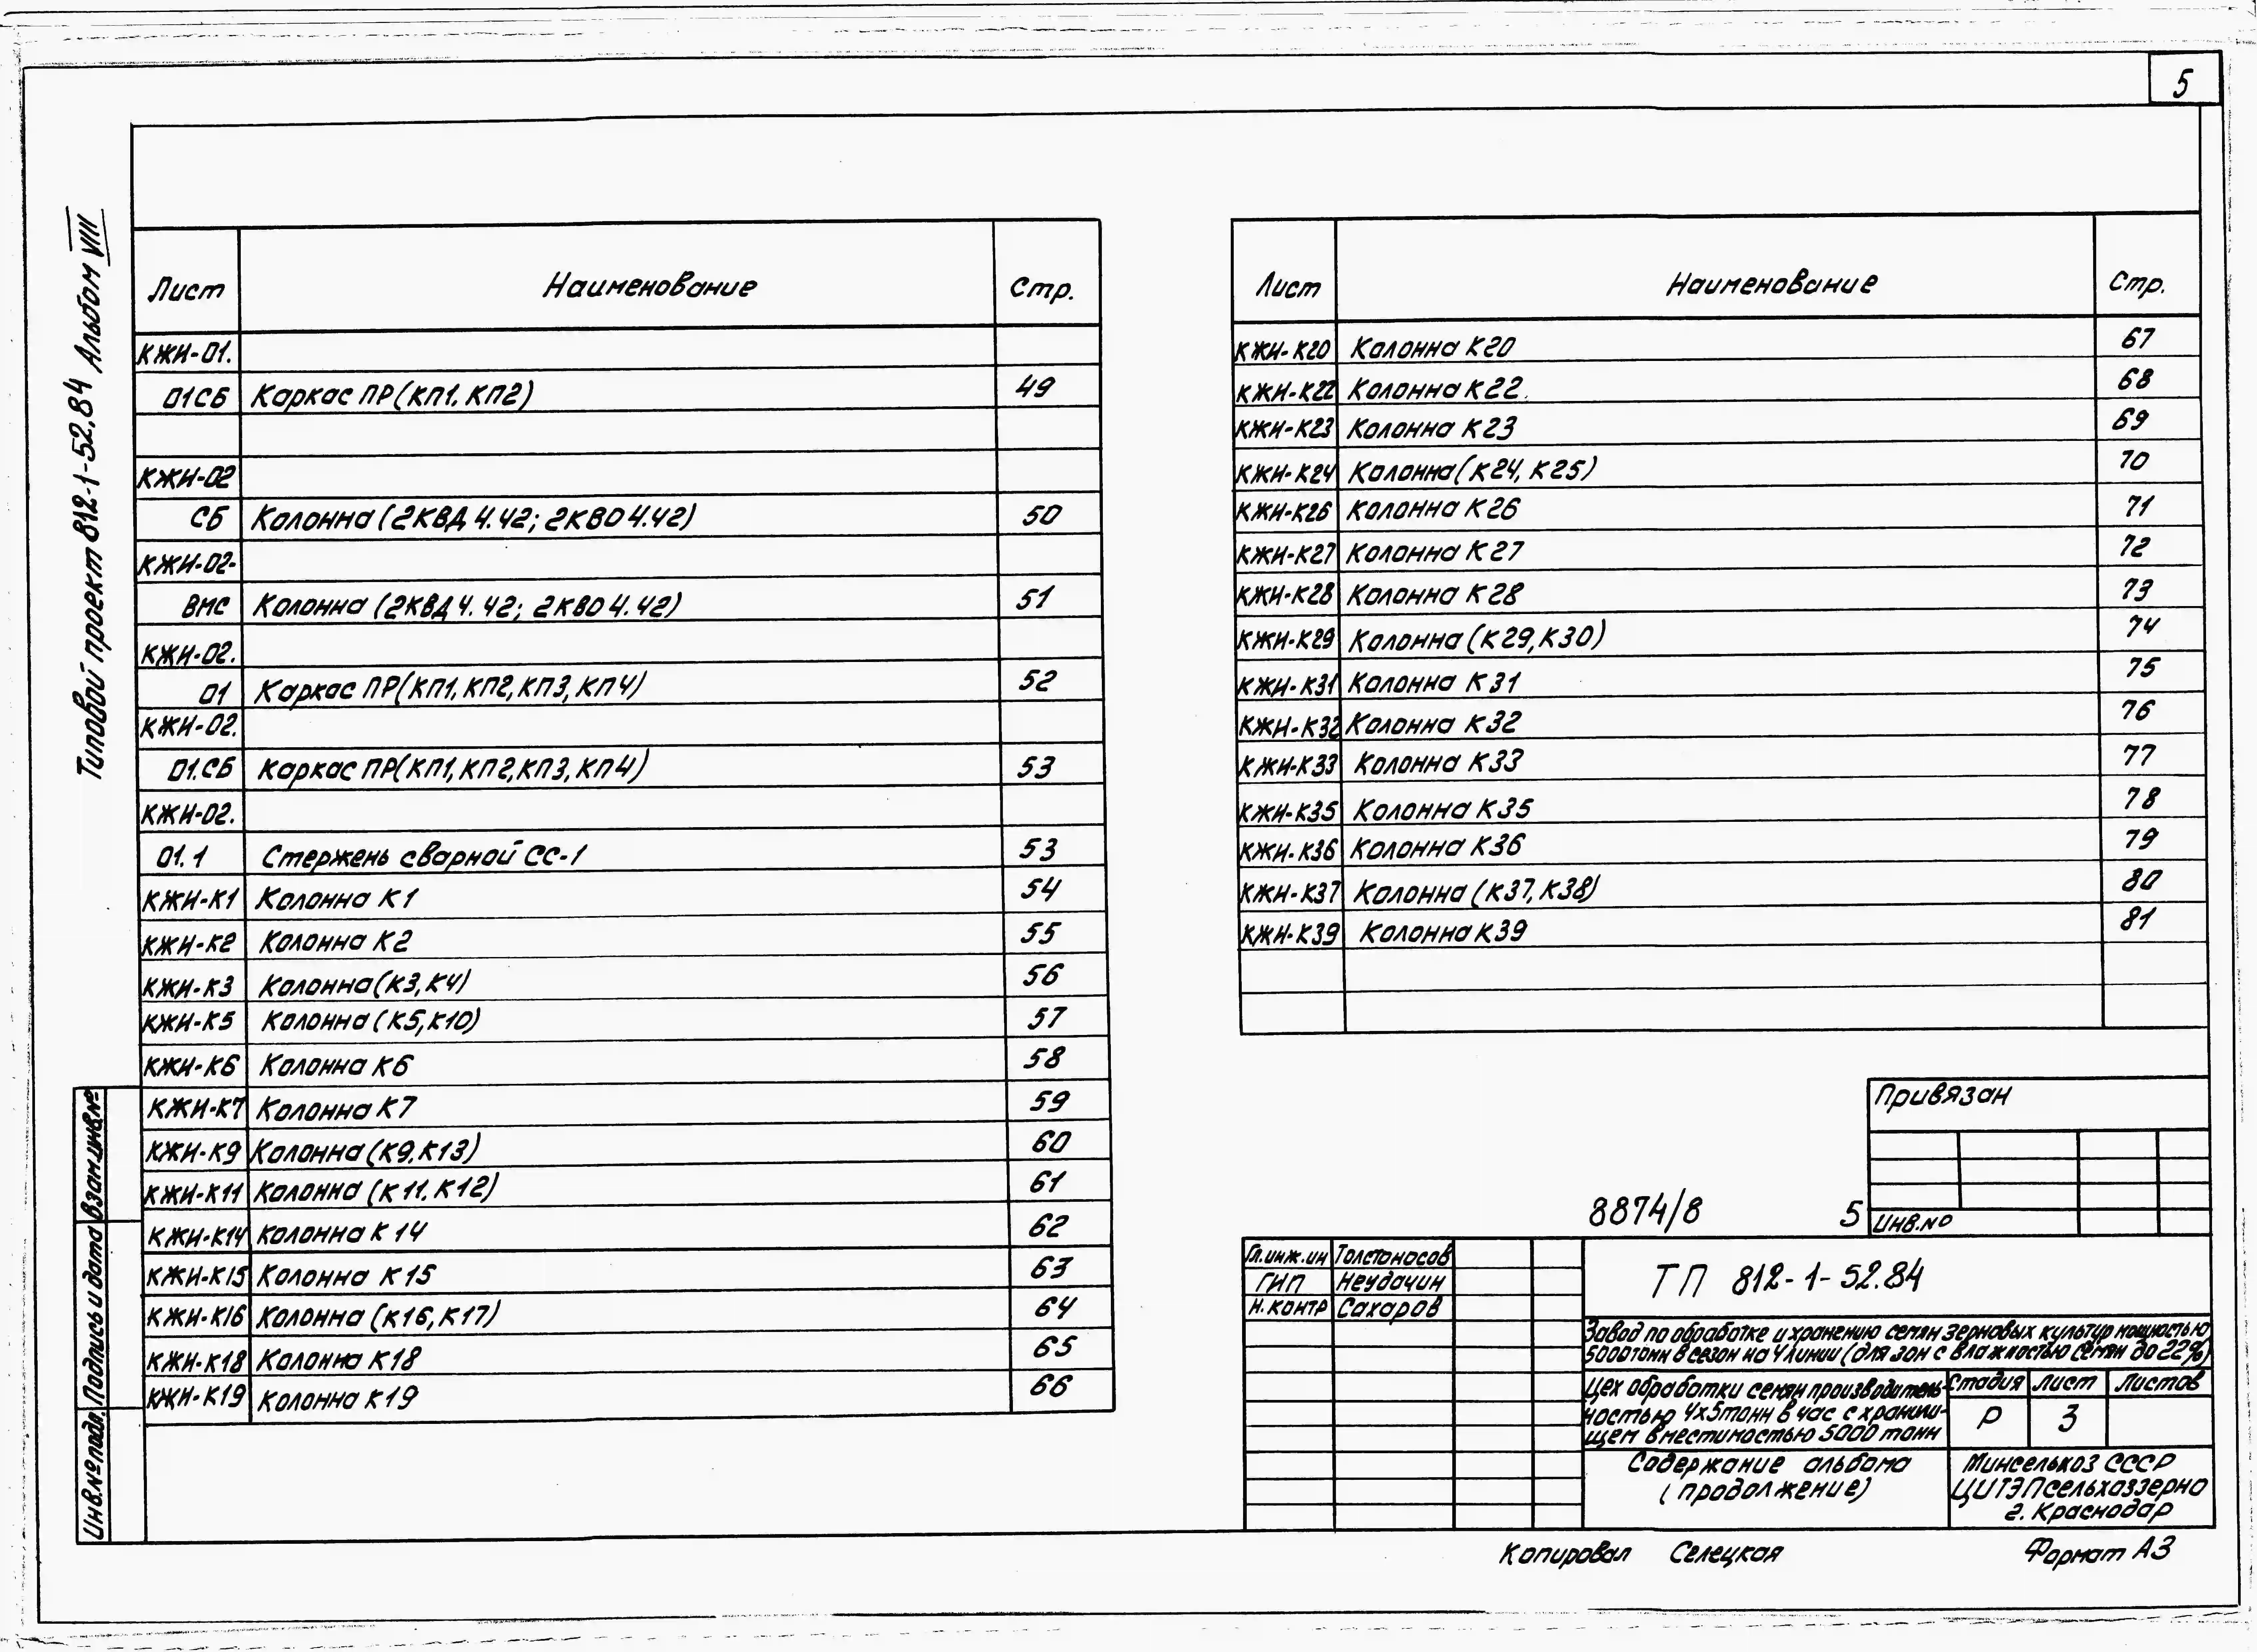 5
Типовой проект 812-1-52.84 Альбом VIII
Лист Наименование Стр.
КЖИ-01.
01СБ Каркас ПР(КП1, КП2) 49
КЖИ-02
СБ Колонна (2КВД 4.42; 2КВО 4.42) 50
КЖИ-02-
ВМС Колонна (2КВД 4.42; 2КВО 4.42) 51
КЖИ-02.
01 Каркас ПР(КП1, КП2, КП3, КП4) 52
КЖИ-02.
01.СБ Каркас ПР(КП1, КП2, КП3, КП4) 53
КЖИ-02.
01.1 Стержень сварной СС-1 53
КЖИ-К1 Колонна К1 54
КЖИ-К2 Колонна К2 55
КЖИ-К3 Колонна (К3, К4) 56
КЖИ-К5 Колонна (К5, К10) 57
КЖИ-К6 Колонна К6 58
КЖИ-К7 Колонна К7 59
КЖИ-К9 Колонна (К9, К13) 60
КЖИ-К11 Колонна (К11, К12) 61
КЖИ-К14 Колонна К14 62
КЖИ-К15 Колонна К15 63
КЖИ-К16 Колонна (К16, К17) 64
КЖИ-К18 Колонна К18 65
КЖИ-К19 Колонна К19 66
Лист Наименование Стр.
КЖИ-К20 Колонна К20 67
КЖИ-К22 Колонна К22. 68
КЖИ-К23 Колонна К23 69
КЖИ-К24 Колонна (К24, К25) 70
КЖИ-К26 Колонна К26 71
КЖИ-К27 Колонна К27 72
КЖИ-К28 Колонна К28 73
КЖИ-К29 Колонна (К29, К30) 74
КЖИ-К31 Колонна К31 75
КЖИ-К32 Колонна К32 76
КЖИ-К33 Колонна К33 77
КЖИ-К35 Колонна К35 78
КЖИ-К36 Колонна К36 79
КЖИ-К37 Колонна (К37, К38) 80
КЖИ-К39 Колонна К39 81
Привязан
Инв.№
8874/8 5
Гл.инж.ин Толстоносов
ГИП Неудачин
Н.контр Сахаров
ТП 812-1-52.84
Завод по обработке и хранению семян зерновых культур мощностью
5000 тонн в сезон на 4 линии (для зон с влажностью семян до 22%)
Цех обработки семян производитель-
ностью 4х5тонн в час с хранили-
щем вместимостью 5000 тонн
Стадия Лист Листов
Р 3
Содержание альбома
(продолжение)
Минсельхоз СССР
ЦИТЭПсельхоззерно
г. Краснодар
Копировал Селецкая Формат А3
Взам.инв.№
Подпись и дата
Инв.№ подл.